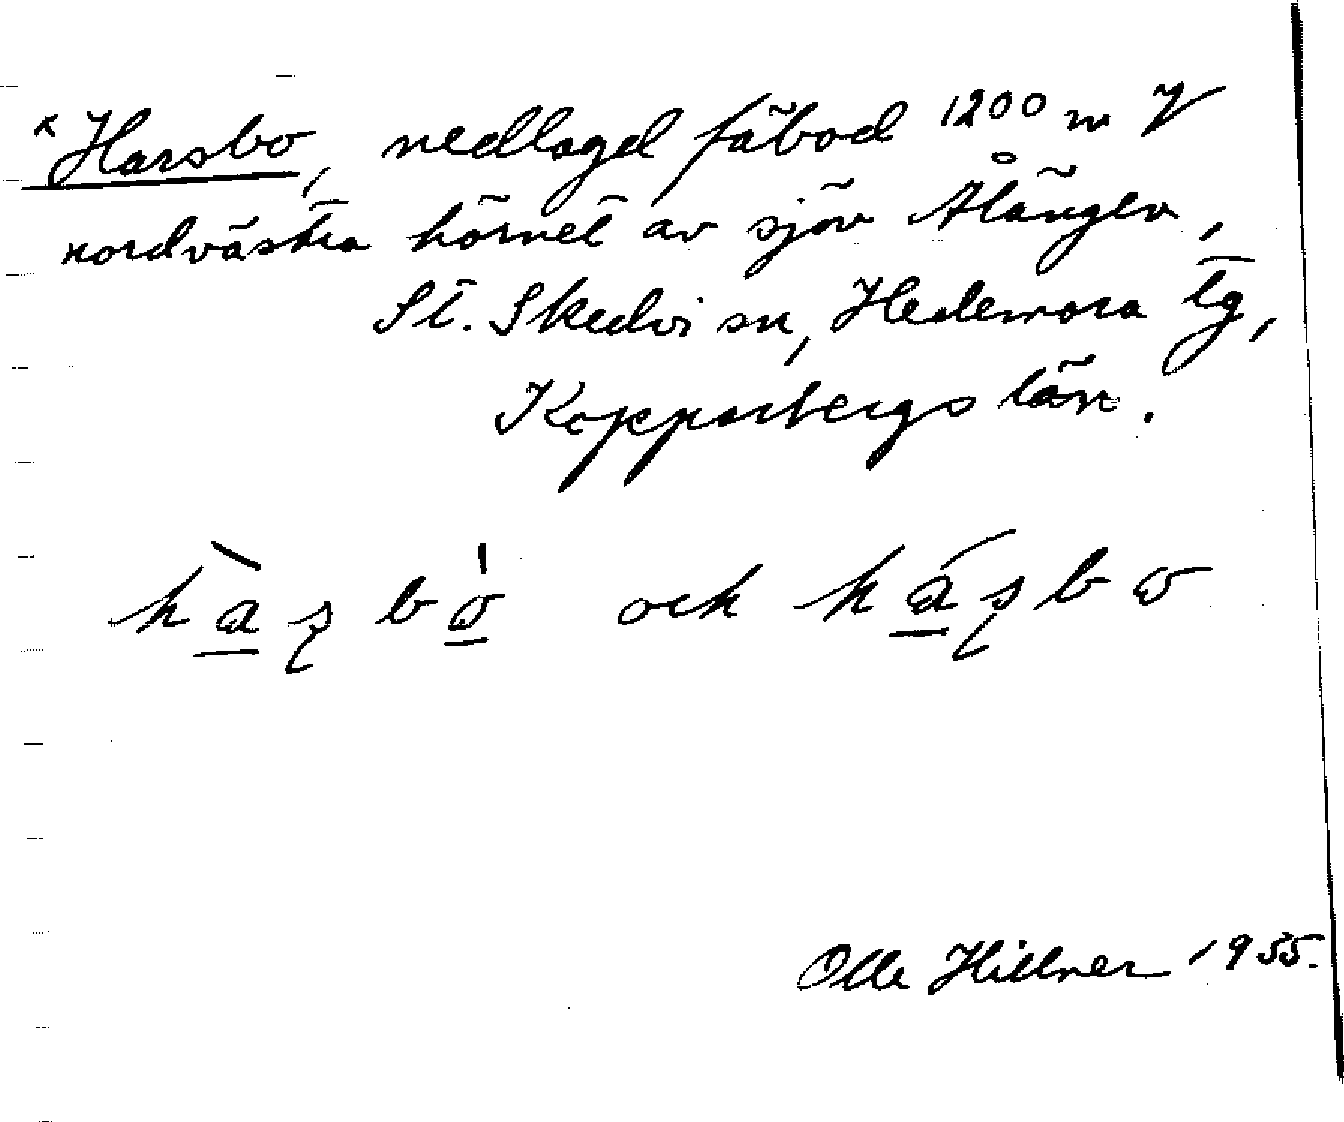 x Harsbo, nedlagd fäbod 1200 m V
nordvästra hörnet av sjön Ålängen,
St. Skedvi sn, Hedemora tg,
Kopparbergs län.
hàʂbo̍ och háʂbo
Olle Hillner 1955.